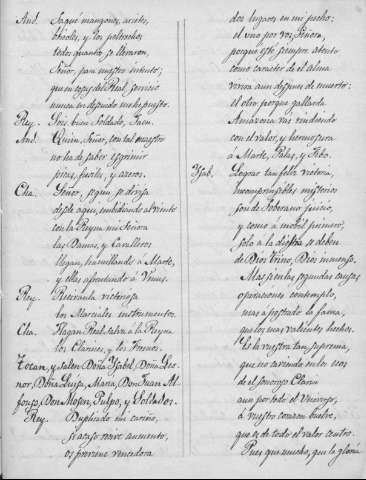 And. Saqué mangones, arietes,
y los pertrechos
todos quantos se llevaron,
Señor, para nuestro intento;
que en copas del Real servicio
nunca en despundo me he puesto.
Rey. Sois buen Soldado, Juan.
And. Quien, Señor, con tal maestro
no ha de saber esgrimir
picas, fusiles, y aceros.
Cha. Señor, segun se divisa
desde aqui, embidiando al viento
con la Reyna mi Señora
las Damas, y Cavalleros
llegan, humillando à Marte,
y ellas afrentando à Venus.
Rey. Recivanla victoriosa
los Marciales instrumentos.
Cha. Hagan Real salva à la Reyna
los Clarines, y los Truenos.
Tocan, y salen Doña Ysabel, Doña Leo-
nor, Doña Luisa, Maria, Don Juan Al-
fonso, Don Mosen, Pulpo, y Soldados.
Rey. Duplicado mi cariño,
si acaso recive aumento,
os previene vencedora
dos lugares en mi pecho:
el uno por vos, Señora,
porque este siempre atento
como caracter de el alma
vivira aun despues de muerto:
el otro porque gallarda
Amazona vas venciendo
con el valor, y hermosura
à Marte, Palas, y Febo.
Ysab. Lograr tan feliz victoria,
incomprensibles misterios
son de Soberano juicio,
y como à mobil primero,
solo à la diestra se deben
de Dios Trino, Dios inmenso.
Mas si en las segundas causas
oposicion contemplo,
mas à postrado la fama,
que los mas valientes hechos.
Es la vuestra tan suprema,
que no caviendo en los ecos
de el sonoroso Clarin
aun por todo el Universo,
à vuestro corazon buelve,
que es de todo el valor centro.
Pues que mucho, que la gloria